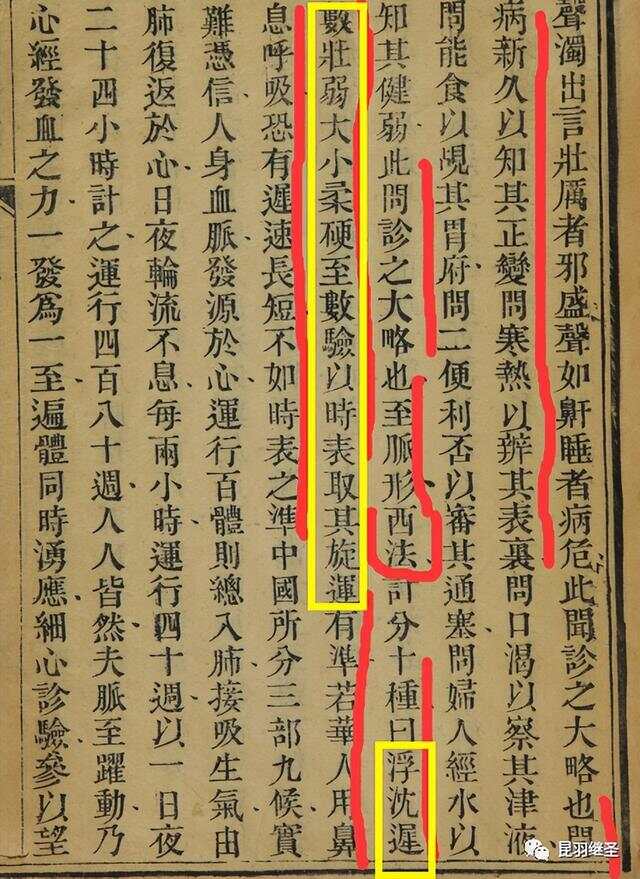 聲濁出言壯厲者邪盛聲如鼾睡者病危此聞診之大略也問
病新久以知其正變問寒熱以辨其表裏問口渴以察其津液
問能食以覘其胃府問二便利否以審其通塞問婦人經水以
知其健弱此問診之大略也至脈形西法計分十種曰浮沈遲
數壯弱大小柔硬至數驗以時表取其旋運有準若華人用鼻
息呼吸恐有遲速長短不如時表之準中國所分三部九候實
難憑信人身血脈發源於心運行百體則總入肺接吸生氣由
肺復返於心日夜輪流不息每兩小時運行四十週以一日夜
二十四小時計之運行四百八十週人人皆然夫脈至躍動乃
心經發血之力一發爲一至遍體同時湧應細心診驗參以望
昆羽继圣